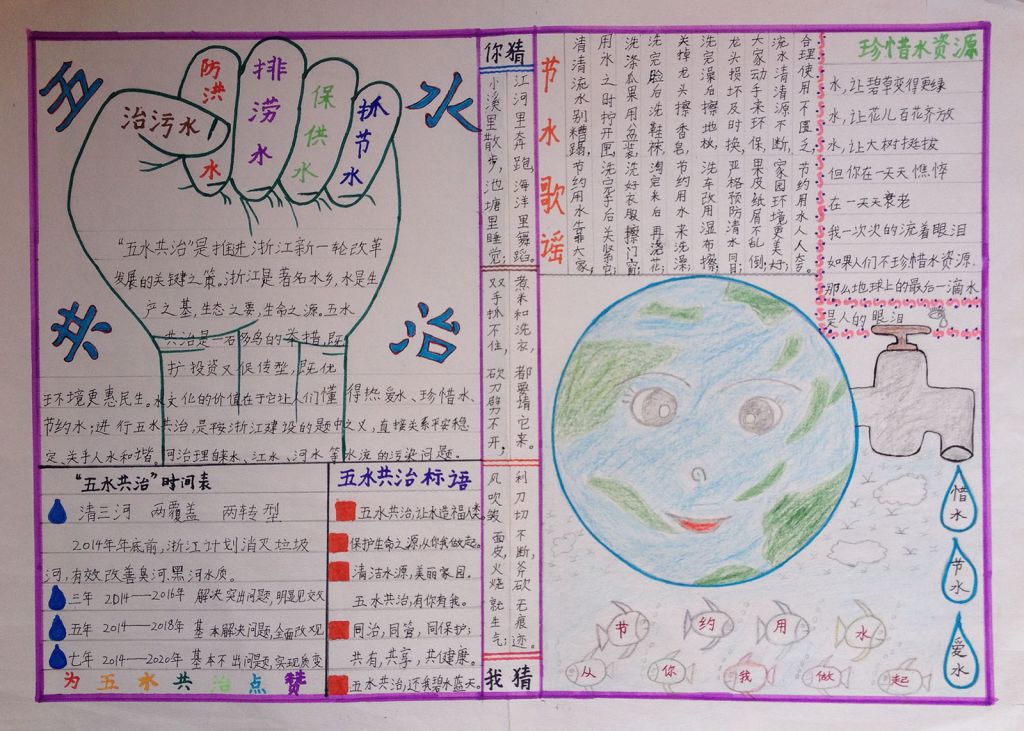 五水共治
治污水
防洪水
排涝水
保供水
抓节水
“五水共治”是推进浙江新一轮改革
发展的关键之策。浙江是著名水乡,水是生
产之基,生态之要,生命之源,五水
共治是一石多鸟的举措,既
扩投资又促转型,既优
环境更惠民生。水文化的价值在于它让人们懂得热爱水、珍惜水、
节约水;进行五水共治,是按浙江建设的题中之义,直接关系平安稳
定、关乎人水和谐。河治理自来水、江水、河水等水流的污染问题。
“五水共治”时间表
清三河 两覆盖 两转型
2014年年底前,浙江计划消灭垃圾
河,有效改善臭河.黑河水质。
三年 2014——2016年 解决突出问题,明显见交效
五年 2014——2018年 基本解决问题,全面改观
七年 2014——2020年 基本不出问题,实现质变
为五水共治点赞
五水共治标语
五水共治,让水造福人类。
保护生命之源,从你我做起。
清洁水源,美丽家园。
五水共治,有你有我。
同治,同管,同保护;
共有,共享,共健康。
五水共治,还我碧水蓝天。
你猜
江河里奔跑,海洋里舞蹈。
小溪里散步,池塘里睡觉,
煮和洗衣,都要请它来。
双手抓不住,砍刀劈不开,
利刀切不断,斧砍无痕迹。
风吹皱面皮,火烧就生气;
我猜
节水歌谣
合理使用不匮乏,节约用水人人夸。
流水清清源不断,家园环境更美好;
大家动手来环保,果皮纸屑不乱倒;
龙头损坏及时换,严格预防清水冒;
洗完澡后擦地板,洗车改用湿布擦;
关掉龙头擦香皂,节约用水来洗澡;
洗完脸后洗鞋袜,淘完米后再浇花;
洗涤瓜果用盆装,洗好衣服擦门窗;
用水之时拧开匣,洗完手后关紧它;
清清流水别糟蹋,节约用水靠大家,
珍惜水资源
水,让碧草变得更绿
水,让花儿百花齐放
水,让大树挺拔
但你在一天天憔悴
在一天天衰老
我一次次的流着眼泪
如果人们不珍惜水资源.
那么地球上的最后一滴水
是人的眼泪
惜水
节水
爱水
节约用水
从你我做起